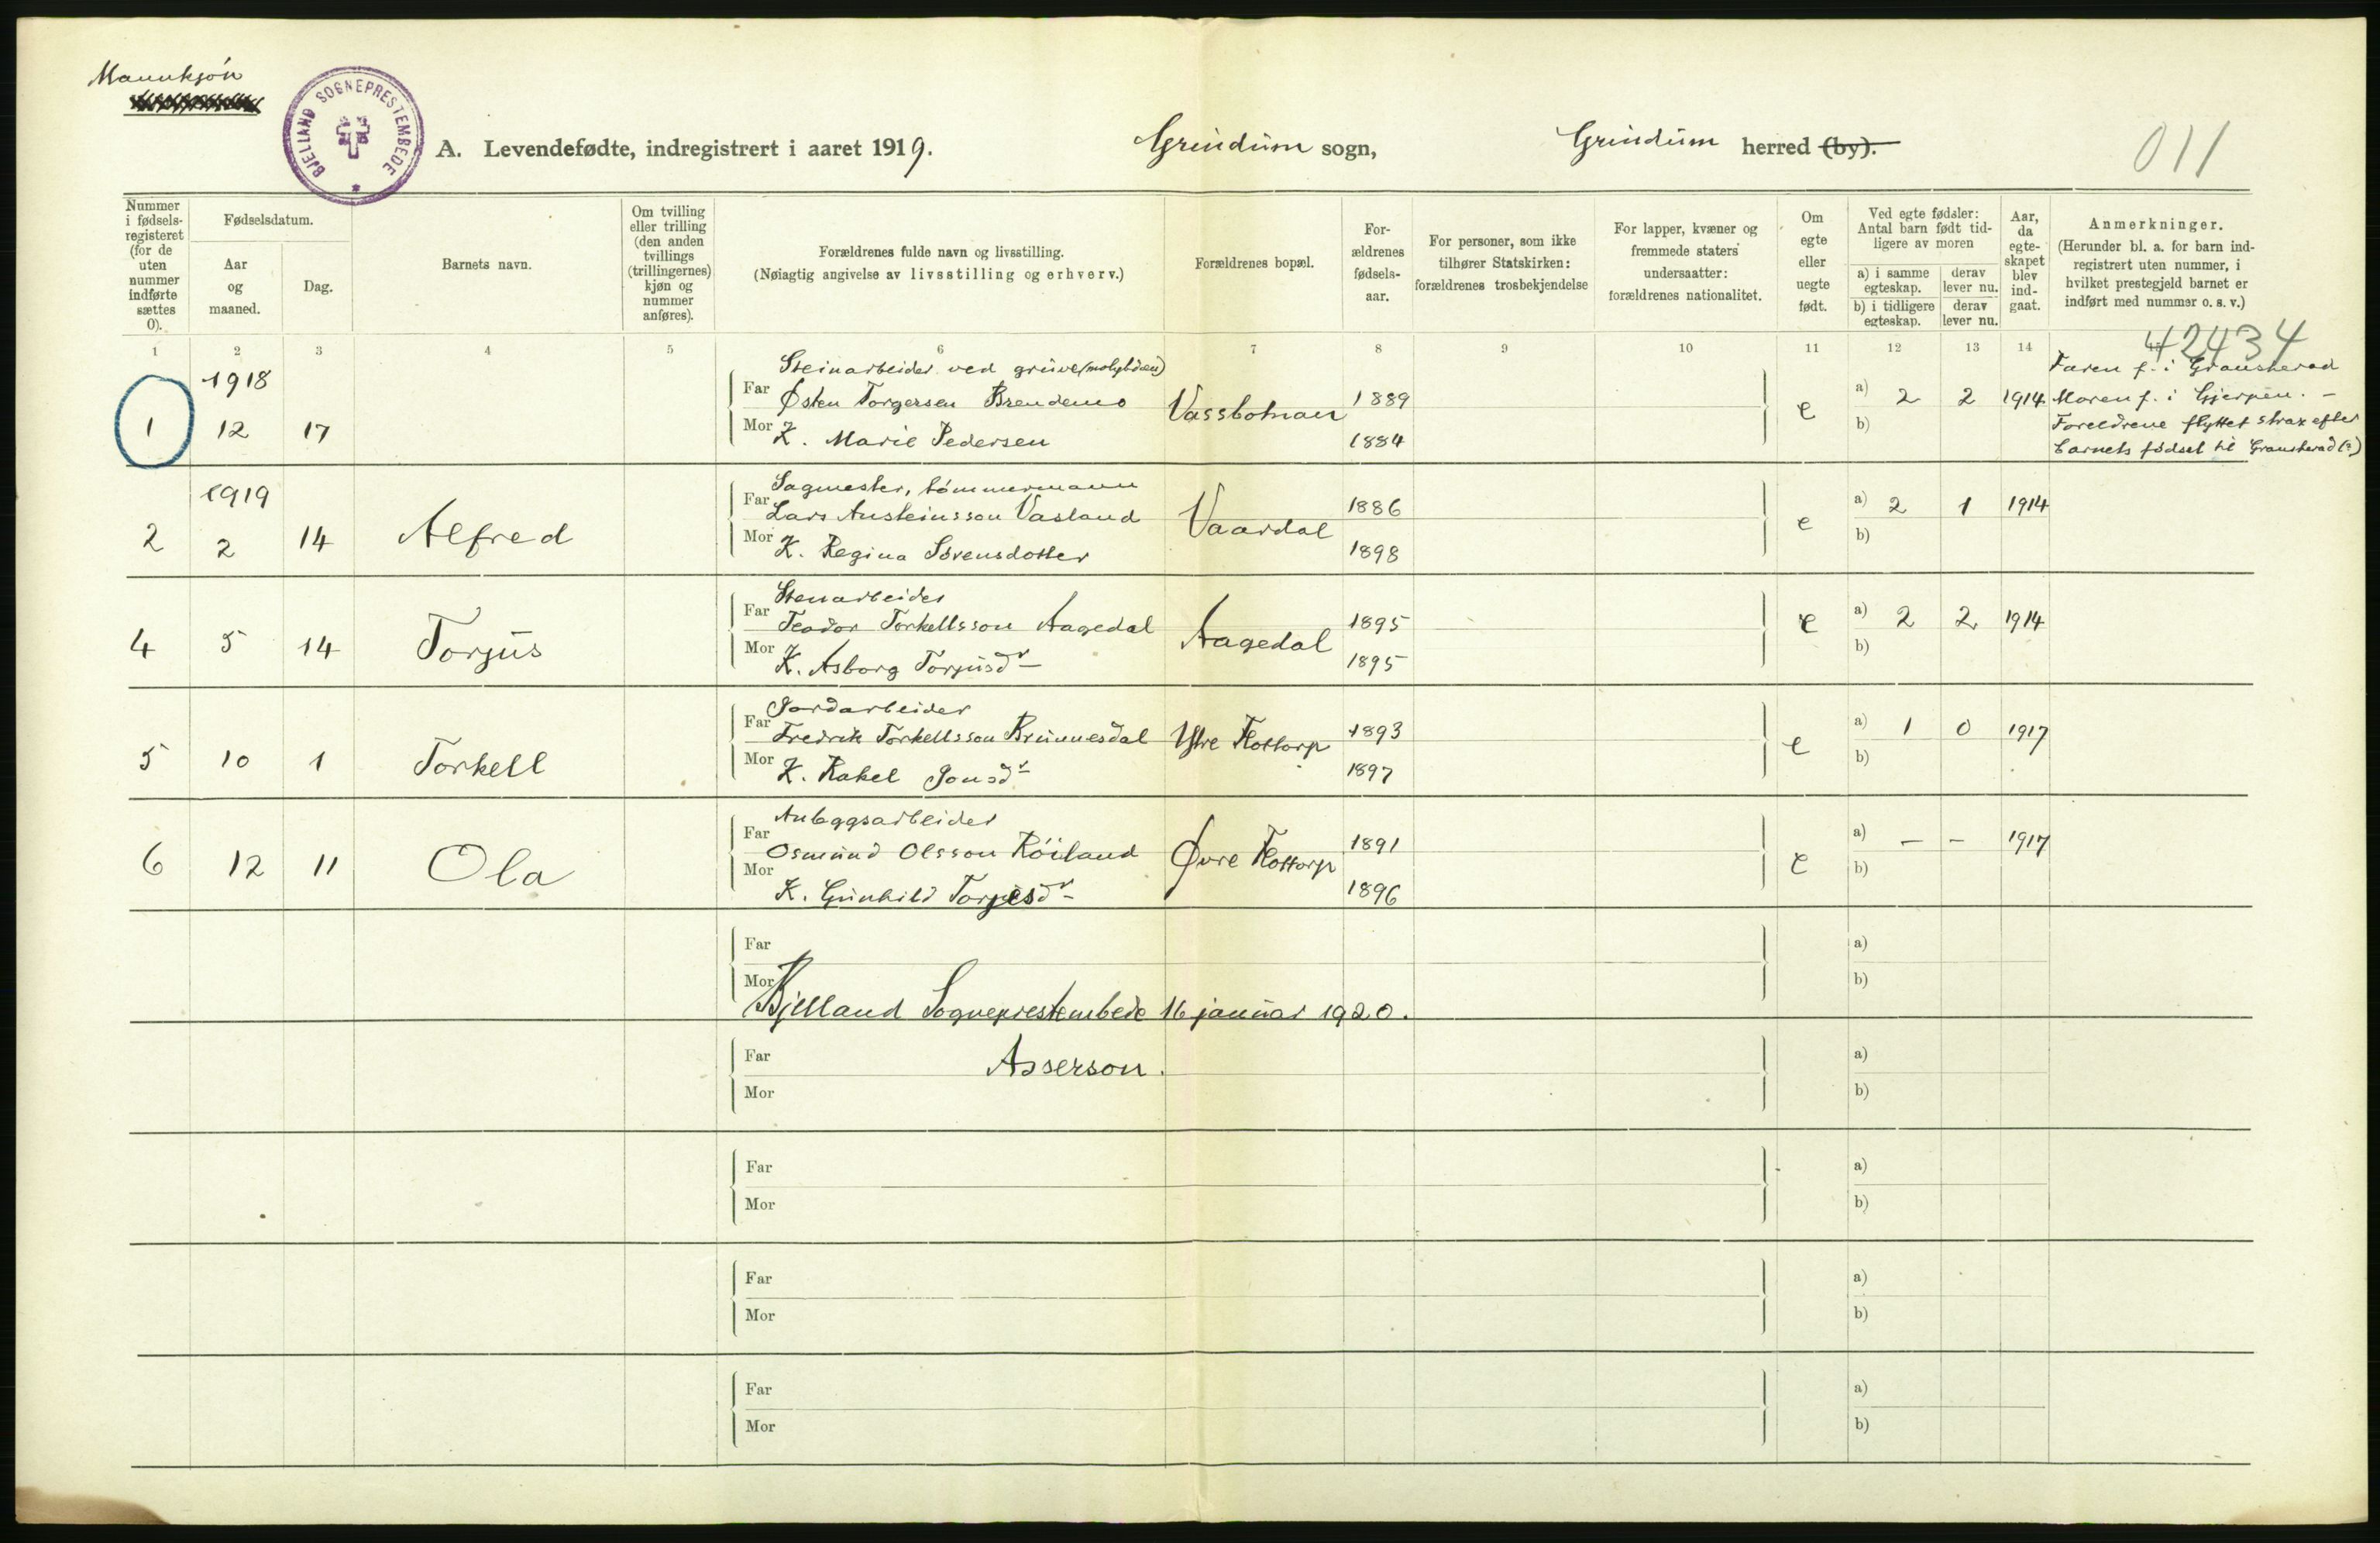 Mannkjøn
BJELLAND SOGNEPRESTEMBEDE
A. Levendefødte, indregistrert i aaret 1919. Grindum sogn, Grindum herred (by).
011
Nummer i fødselsregisteret (for de uten nummer indførte sættes 0).
Fødselsdatum.
Aar og maaned.
Dag.
Barnets navn.
Om tvilling eller trilling (den anden tvillings (trillingernes) kjøn og nummer anføres).
Forældrenes fulde navn og livsstilling.
(Nøiagtig angivelse av livsstilling og erhverv.)
Forældrenes bopæl.
Forældrenes fødselsaar.
For personer, som ikke tilhører Statskirken: forældrenes trosbekjendelse
For lapper, kvæner og fremmede staters undersaatter: forældrenes nationalitet.
Om egte eller uegte født.
Ved egte fødsler: Antal barn født tidligere av moren
a) i samme egteskap.
derav lever nu.
b) i tidligere egteskap.
derav lever nu.
Aar, da egteskapet blev indgaat.
Anmerkninger.
(Herunder bl. a. for barn indregistrert uten nummer, i hvilket prestegjeld barnet er indført med nummer o. s. v.)
1 2 3 4 5 6 7 8 9 10 11 12 13 14
42434
1918
Steinarbeider ved gruve (molybdæn)
Far Østen Torgersen Brendemo 1889
1 12 17 Vassbotnan e a) 2 2 1914
Mor K. Marie Pedersen 1884 b)
Faren f. i Gransherad
Moren f. i Gjerpen. –
Foreldrene flyttet strax efter
barnets fødsel til Gransherad (?)
1919
Sagmester, tømmermann
Far Lars Austeinsson Vasland 1886
2 2 14 Alfred Vaardal e a) 2 1 1914
Mor K. Regina Sørensdotter 1898 b)
Stenarbeider
Far Teodor Torkellsson Aagedal 1895
4 5 14 Torjus Aagedal e a) 2 2 1914
Mor K. Asborg Torjusdr 1895 b)
Jordarbeider
Far Fredrik Torkellsson Brunnesdal 1893
5 10 1 Torkell Ytre Flottorp e a) 1 0 1917
Mor K. Rakel Jonsdr 1897 b)
Anleggsarbeider
Far Osmund Olsson Röiland 1891
6 12 11 Ola Øvre Flottorp e a) – – 1917
Mor K. Gunhild Torjesdr 1896 b)
Far a)
Mor b)
Bjelland Sogneprestembede 16 januar 1920.
Far Asserson. a)
Mor b)
Far a)
Mor b)
Far a)
Mor b)
Far a)
Mor b)